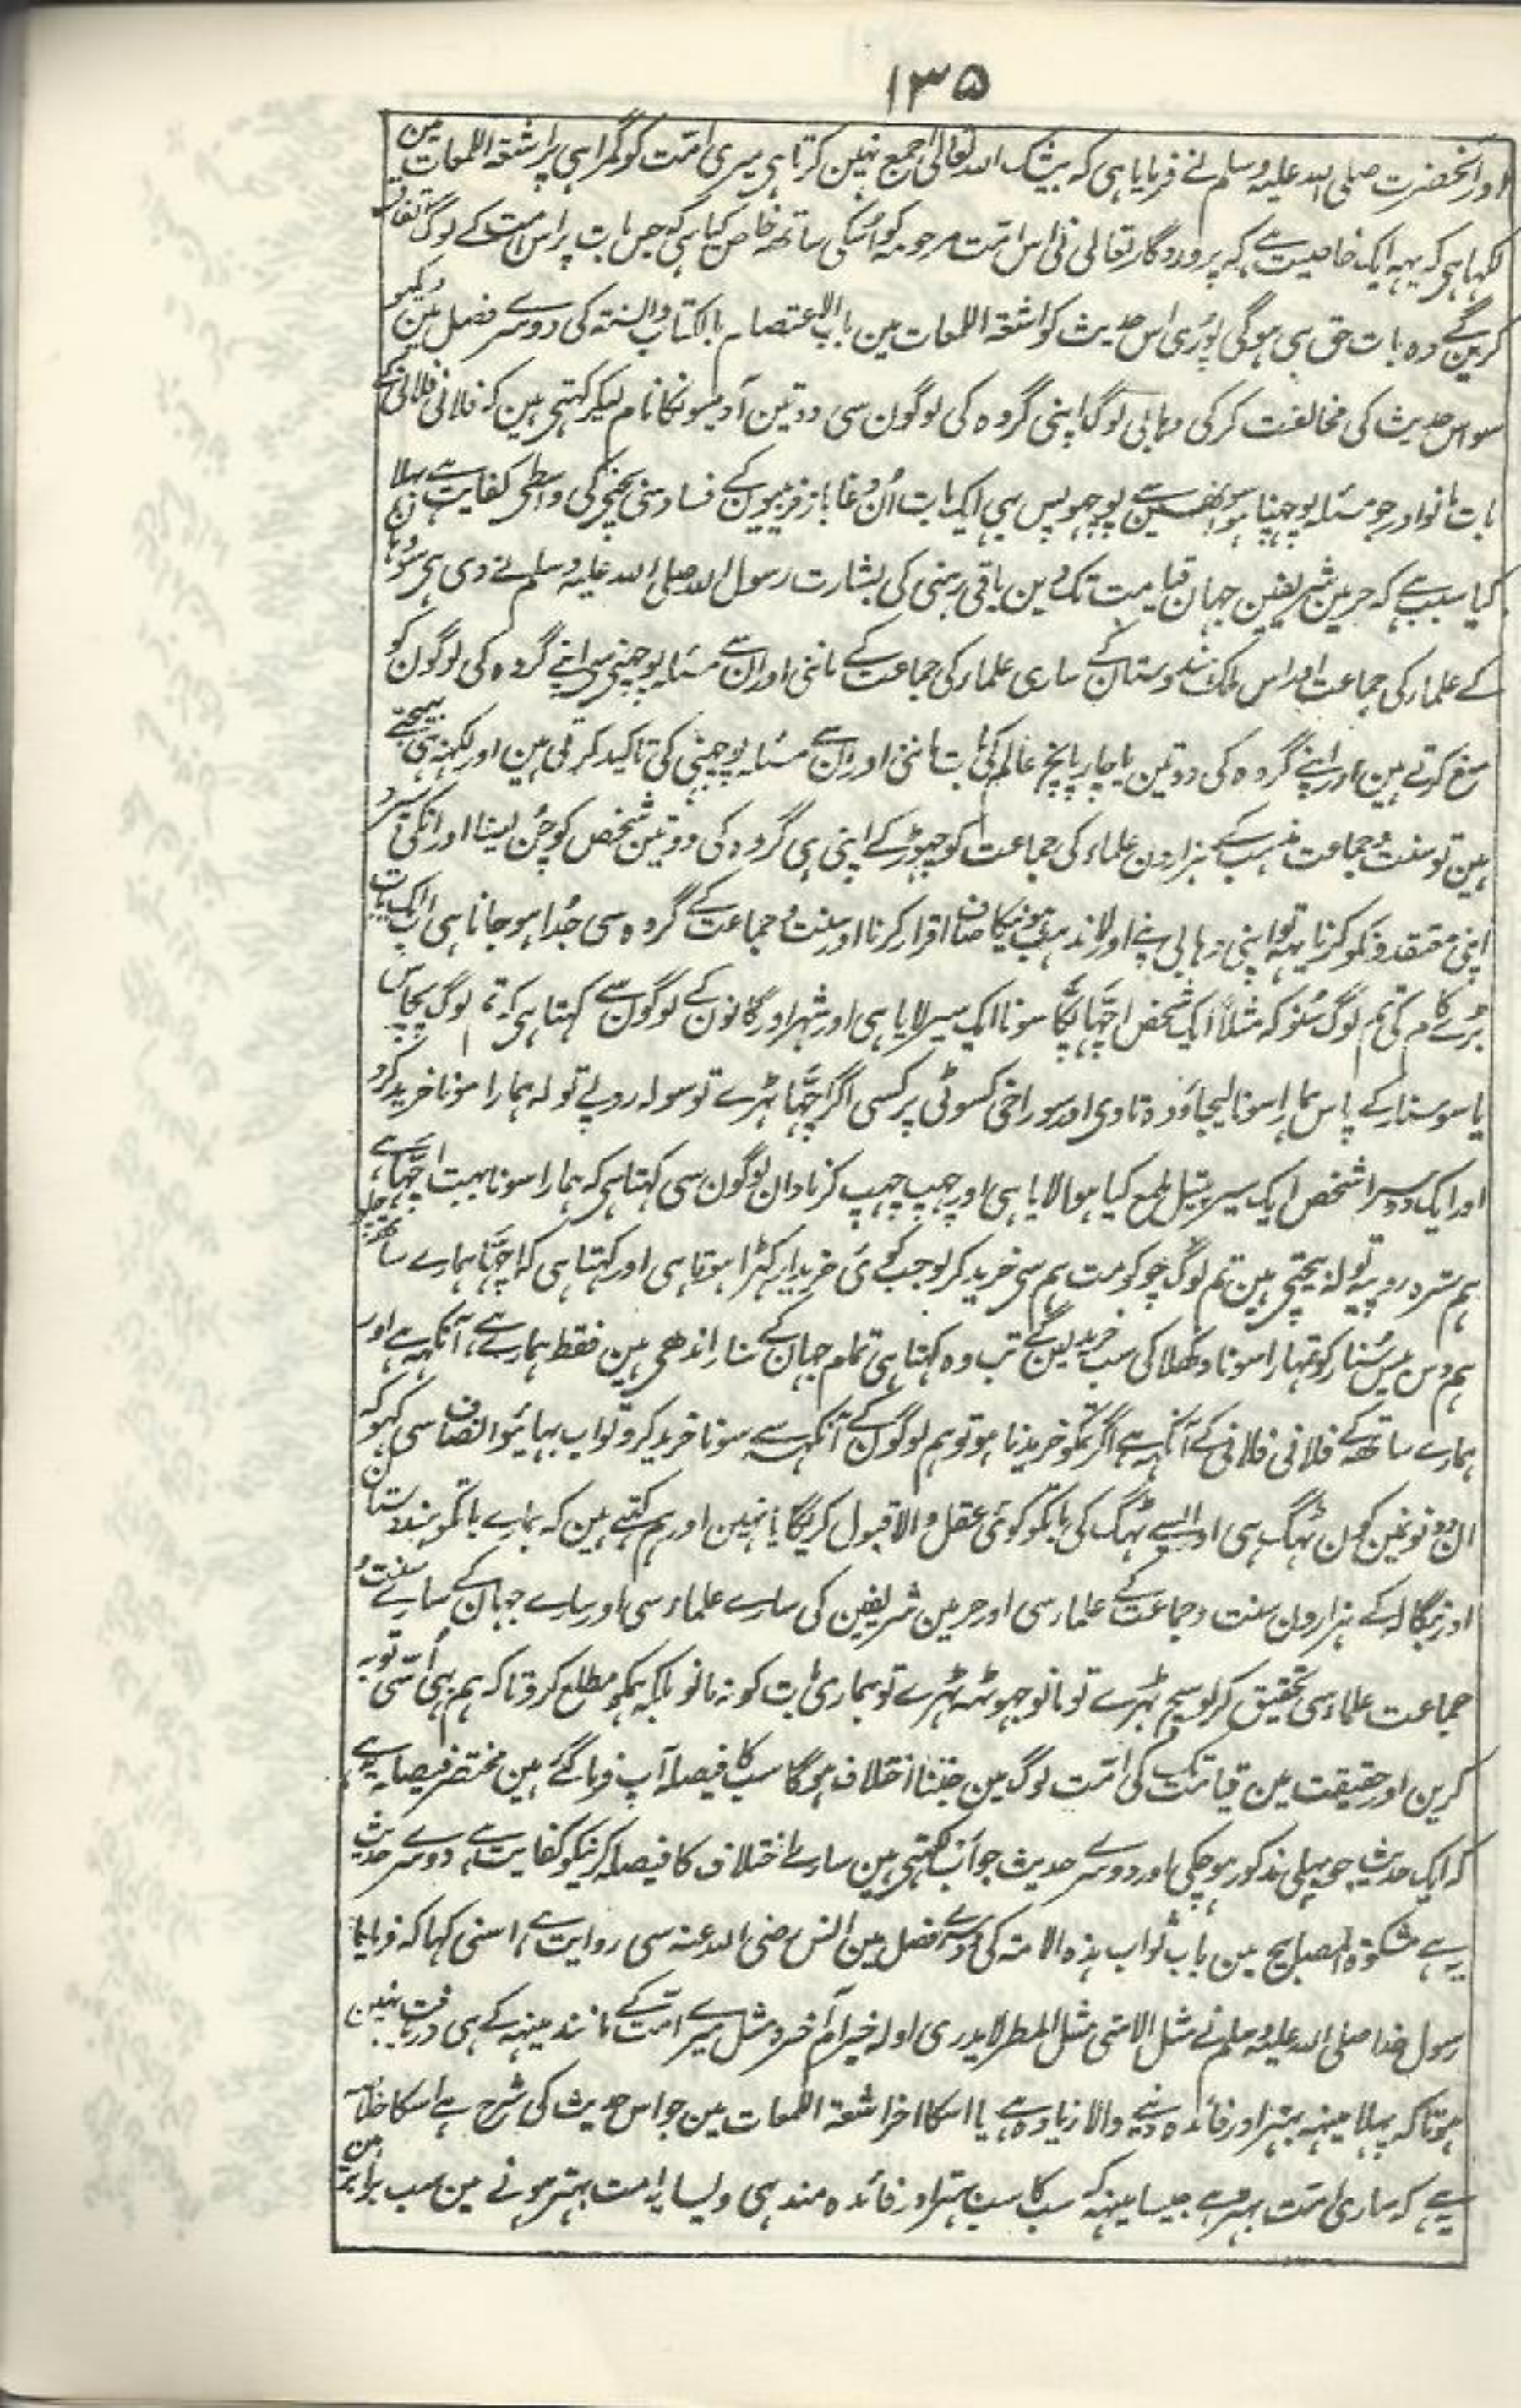 ۱۳۵
اور آنحضرت صلی اللہ علیہ وسلم نے فرمایا ہی کہ بیشک اللہ تعالی جمع نہین کرتا ہی میری امّت کو گمراہی پر اشعۃ اللمعات مین
لکہا ہی کہ یہہ ایک خاصیت ہے کہ پروردگار تعالی نی اس امّت مرحومہ کو اُسکی ساتھہ خاص کیا ہی کہ جس بات پر اس امت کے لوگ اتفاق
کرین گے وہ بات حق ہی ہوگی پوری اس حدیث کو اشعۃ اللمعات مین باب الاعتصام بالکتاب والسنۃ کی دوسرے فصل مین دیکہو
سو اس حدیث کی مخالفت کر کی وہابی لوگ اپنی گروہ کی لوگون سی دو تین آدمیونکا نام لیکر کہتی ہین کہ فلانی فلانی کے
بات مانو اور جو مسئلہ پوچہنا ہو انہین سے پوچہو پس یہی ایک بات اُن دغاباز فریبیون کے فساد سی بچنے کی واسطی کفایت ہے بہلا
کیا سبب ہے کہ حرمین شریفین جہان قیامت تک دین باقی رہنی کی بشارت رسول اللہ صلی اللہ علیہ وسلم نے دی ہی سو وہان
کے علماء کی جماعت اور اس ملک ہندوستان کے ساری علماء کی جماعت کے ماننی اور ان سے مسئلہ پوچہنی سی اپنے گروہ کی لوگون کو
منع کرتے ہین اور اپنے گروہ کی دو تین یا چار پانچ عالم کی بات ماننی اور ان سے مسئلہ پوچہنی کی تاکید کرتی ہین اور لکہہ بہی بہیجتے
ہین تو سنت و جماعت مذہب کے ہزارون علماء کی جماعت کو چہوڑ کے اپنی ہی گروہ کی دو تین شخص کو چُن لینا اور انکی تئین
اپنی معتقدونکو کرنا یہہ تو اپنی وہابی پنے اور لا مذہب ہونیکا صاف اقرار کرنا اور سنت و جماعت کے گروہ سی جُدا ہو جانا ہی اب ایک بات
بڑے کام کی تم لوگ سُنو کہ مثلاً ایک شخص اچّہا پکّا سونا ایک سیر لایا ہی اور شہر اور گانون کے لوگون سے کہتا ہی کہ تم لوگ پچاس
یا سو سنار کے پاس ہمارا سونا لیجاؤ وہ تاوی اور سوراخی کسوٹی پر کسی اگر اچّہا ٹہرے تو سولہ روپے تولہ ہمارا سونا خرید کرو
اور ایک دوسرا شخص ایک سیر پیتل ملمع کیا ہوا لایا ہی اور چہپ چہپ کر نادان لوگون سی کہتا ہی کہ ہمارا سونا بہت اچّہا ہے
ہم سترہ روپیہ تولہ بیچتی ہین تم لوگ چوکو مت ہم سی خرید کر لو جب کوئی خریدار کہڑا ہوتا ہی اور کہتا ہی کہ اچّہا ہمارے ساتھہ چلو
ہم دس بیس سُنار کو تمہارا سونا دکھلا کی سب خرید لین گے تب وہ کہتا ہی تمام جہان کے سنار اندھی ہین فقط ہمارے آنکہہ ہے اور
ہمارے ساتھہ کے فلانی فلانی کے آنکہہ ہے اگر تمکو خریدنا ہو تو ہم لوگون کے آنکہہ سے سونا خرید کرو تو اب بہائیو انصاف سی کہو کہ
ان دونو نمین کون ٹہگ ہی اور ایسے ٹہگ کی بات کو کوئی عقل والا قبول کریگا یا نہین اور ہم کہتے ہین کہ ہمارے بات کو ہندوستان
اور بنگالہ کے ہزارون سنت و جماعت کے علماء سی اور حرمین شریفین کی سارے علماء سی اور سارے جہان کے سارے سنت و
جماعت علماء سی تحقیق کر لو سچ ٹہرے تو مانو جہوٹہہ ٹہرے تو ہماری بات کو نہ مانو بلکہ ہمکو مطلع کرو تاکہ ہم بہی اُسی توبہ
کرین اور حقیقت مین قیامت تک کی امّت لوگ مین جتنا اختلاف ہوگا سب کا فیصلہ آپ فرما گئے ہین مختصر فیصلہ یہ ہے
کہ ایک حدیث جو پہلی مذکور ہو چکی اور دوسرے حدیث جو اب لکہتی ہین سارے اختلاف کا فیصلہ کرنیکو کفایت ہے دوسرے حدیث
یہ ہے مشکوۃ المصابیح مین باب ثواب ہذہ الامۃ کی دوسرے فصل مین انس رضی اللہ عنہ سی روایت ہے اسنی کہا کہ فرمایا
رسول خدا صلی اللہ علیہ وسلم نے مثل الامتی مثل المطر لا یدری اولہ خیر ام آخرہ مثل میرے امّت کے مانند مینہہ کے ہی دریافت نہین
ہوتا کہ پہلا مینہہ بہتر اور فائدہ دینے والا زیادہ ہے یا اسکا اخر اشعۃ اللمعات مین جو اس حدیث کی شرح ہے اسکا خلاصہ
یہ ہے کہ ساری امّت بہتر ہے جیسا مینہہ کہ سب کا سب بہتر اور فائدہ مند ہی ویسا یہ امت بہتر ہونے مین سب برابر ہین